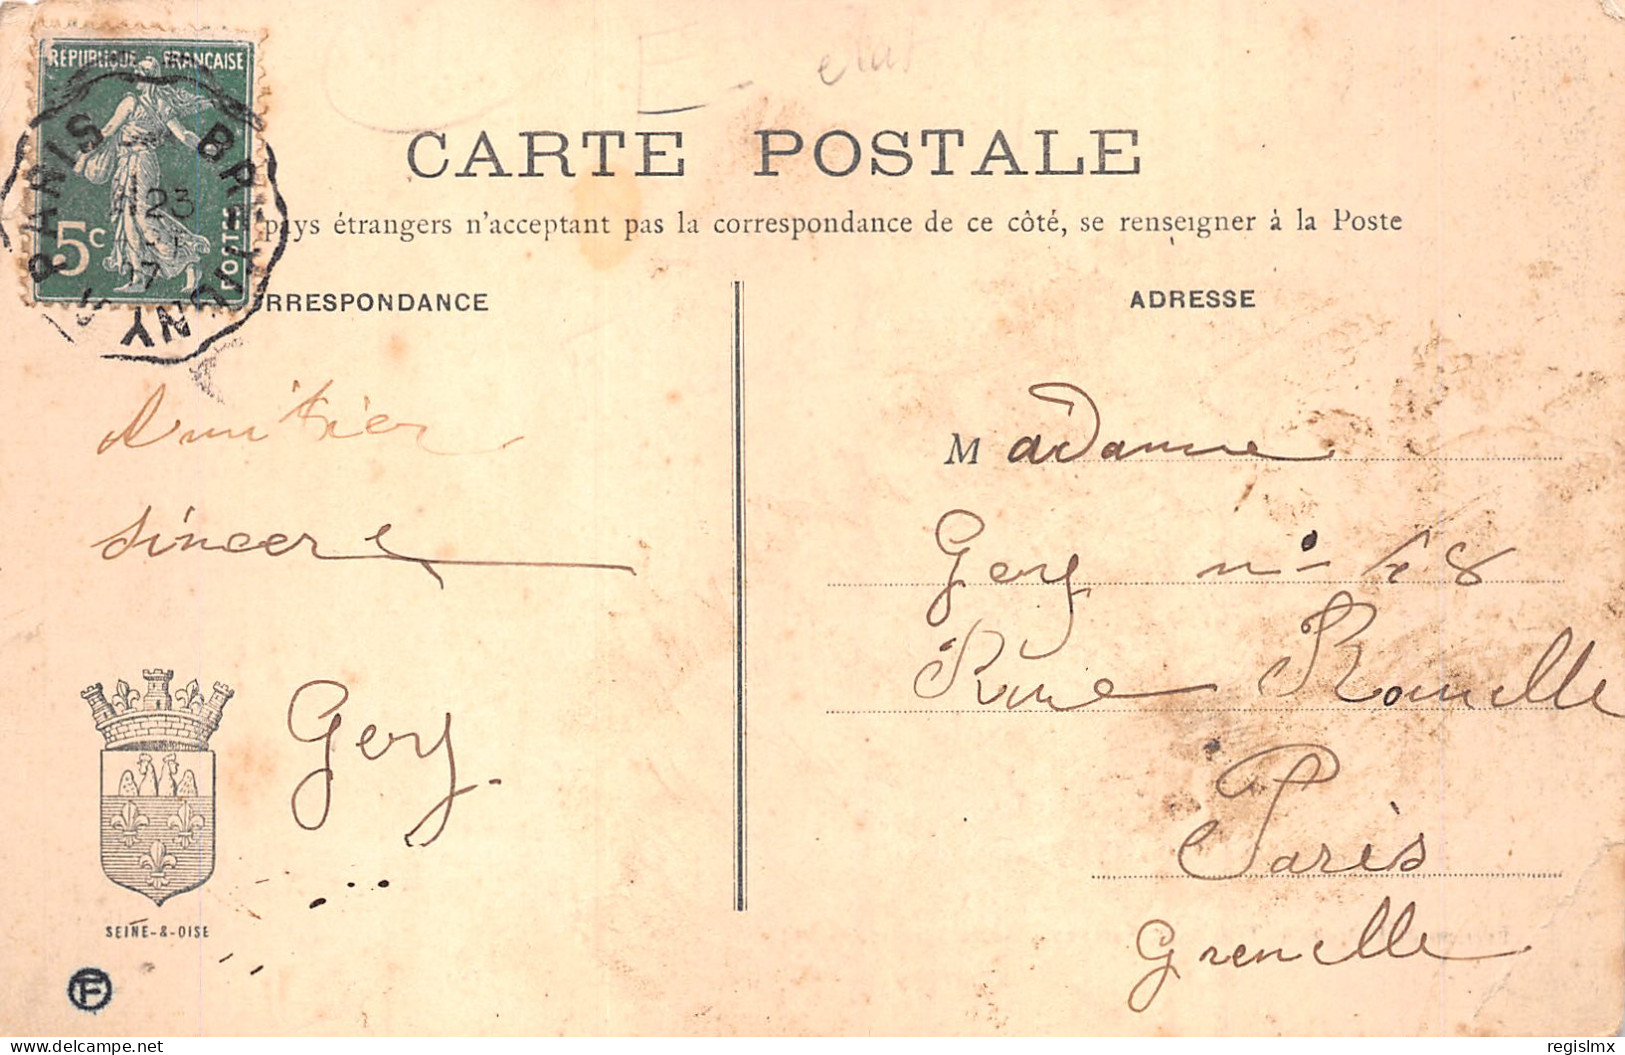 RÉPUBLIQUE FRANÇAISE
5c
POSTES
PARIS
23
27
CARTE POSTALE
pays étrangers n'acceptant pas la correspondance de ce côté, se renseigner à la Poste
RRESPONDANCE
ADRESSE
Amitier
sincere
Gery.
Madame
Gery no 48
Rue Rouelle
Paris
Grenelle
SEINE-&-OISE
delcampe.net
regislmx